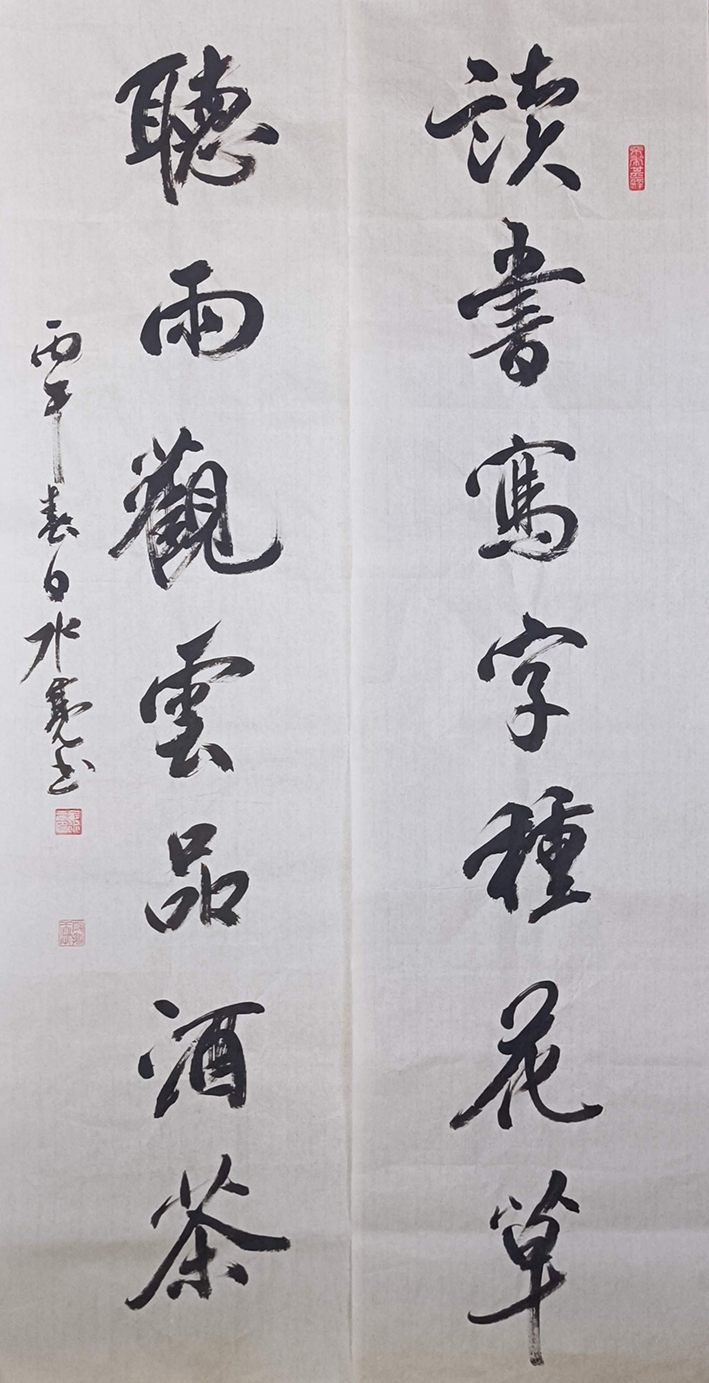 讀書寫字種花草
聽雨觀雲品酒茶
丙午春白水堯书